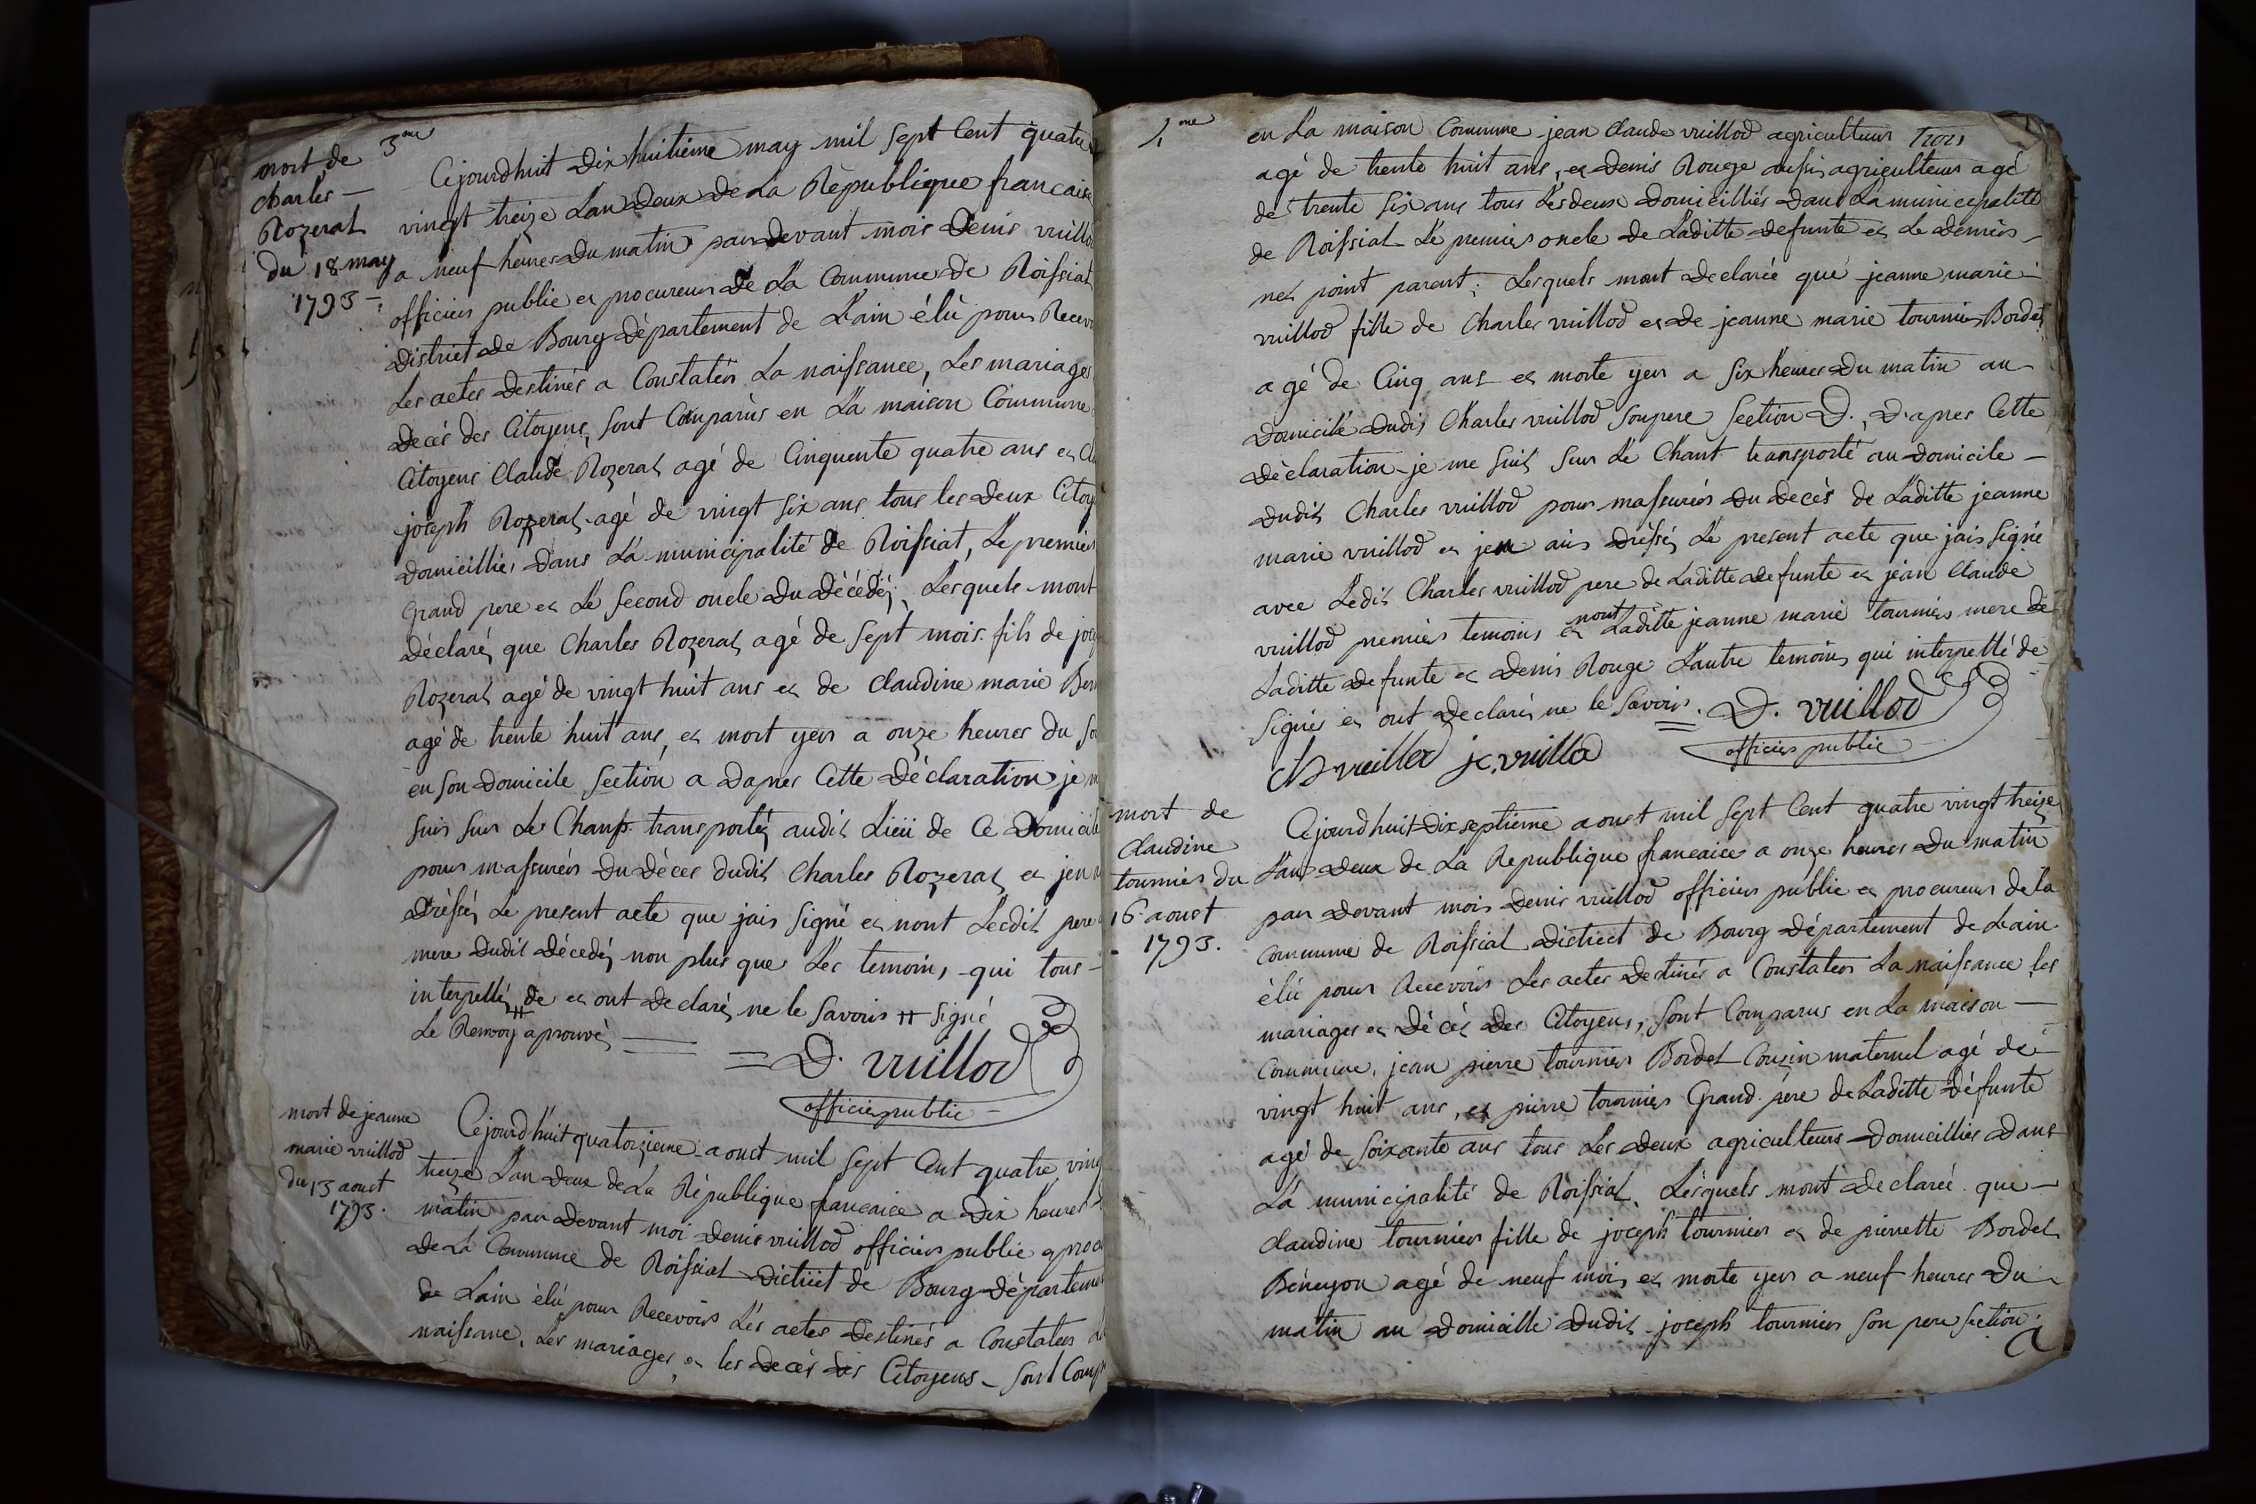 3me
mort de
charles —
Rozerat
du 18 may
1793 —
Cejourdhuit dix huitième may mil sept Cent quatre
vingt treize L'an deux de La République francaise
a neuf heures du matin pardevant mois denis vuillod
officier public et procureur de La Commune de Roissiat
district de Bourg département de L'ain élù pour Recevo
Les actes destinés a Constatér La naissance, Les mariages
décés des Citoyens, sont Comparùs en La maison Commune
Citoyens Claude Rozerat agé de Cinquente quatre ans et
joseph Rozerat agé de vingt six ans tous les deux Citoy
domicilliés dans La municipalité de Roissiat, Le premier
Grand pere et Le second oncle du décédé; Lésquels mont
déclaré que Charles Rozerat agé de sept mois fils de jos
Rozerat agé de vingt huit ans et de Claudine marie Ber
agé de trente huit ans, et mort yer a onze heures du so
en son domicile section a dapres Cette déclaration je m
suis sur Le Champ transporté audit Lieù de Ce domicile
pour massurér du déces dudit Charles Rozerat et jen
dréssé Le present acte que jais signé et nont Lesdit pere
mere dudit décedé non plus que Les temoins, qui tous —
interpellé de # et ont declaré ne le savoir # signé
Le Renvoy aprouvé = D. vuillod
officier public
mort de jeanne
marie vuillod
du 13 aoust
1793.
Cejourd'huit quatorzieme aoust mil sept Cent quatre ving
treize L'an deux de La République francaise a dix heures
matin par devant moi denis vuillod officier public et proc
de La Commune de Roissiat district de Bourg départeme
de Lain élù pour Recevoir Lés actes destinés a Constater
naissane, Les mariages, et les décès dés Citoyens — sont Comp
4me
Trois
en La maison Commune jean Claude vuillod agriculteur
agé de trente huit ans, et denis Rouge aussi agriculteur agé
de trente six ans tous Lés deux domicilliés dans La municepalité
de Roissiat Lé premier oncle de Laditte defunte et Le dernier —
net point parent; Lesquels mont declarée qué jeanne marie
vuillod fille de Charles vuillod et de jeanne marie tournier Bordet
agé de Cinq ans et morte yer a six heures du matin au
domicilé dudit Charles vuillod son pere section D., D'apres Cette
déclaration je me suis sur Lé Chant transporté au domicile —
dudit Charles vuillod pour massurér du decès de Laditte jeanne
marie vuillod et jen ais dréssé Lé present acte que jais signé
avec Ledit Charles vuillod pere de Laditte defunte et jean Claude
vuillod premiér temoins et nont Laditte jeanne marie tournier mere de
Laditte defunte et denis Rouge L'autre temoin, qui interpellé de
signér et ont declaré ne le savoir. = D. vuillod
officier public
Ch vuillod jc. vuillod
mort de
Claudine
tournier du
16 aoust
1793.
Cejourdhuit dix septieme aoust mil sept Cent quatre vingt treize
L'an deux de La Republique francaise a onze heures du matin
par devant mois denis vuillod officier public et procureur de la
Commune de Roissiat district de Bourg département de Lain
élù pour Recevoir Les actes destinés a Constater La naissance les
mariages et décés des Citoyens, sont Comparus en La maison —
Commune, jean pierre tournier Bordet Cousin maternel agé de
vingt huit ans, et pierre tournier Grand pére de Laditte défunte
agé de soixante ans tous Les deux agriculteurs domicilliés dans
La municipalité de Roissiat, Lésquels mont declarée que —
Claudine tournier fille de joseph tournier et de pierrette Bordet
Béneyon agé de neuf mois et morte yer a neuf heures du
matin au domicille dudit joseph tournier son pere section
a